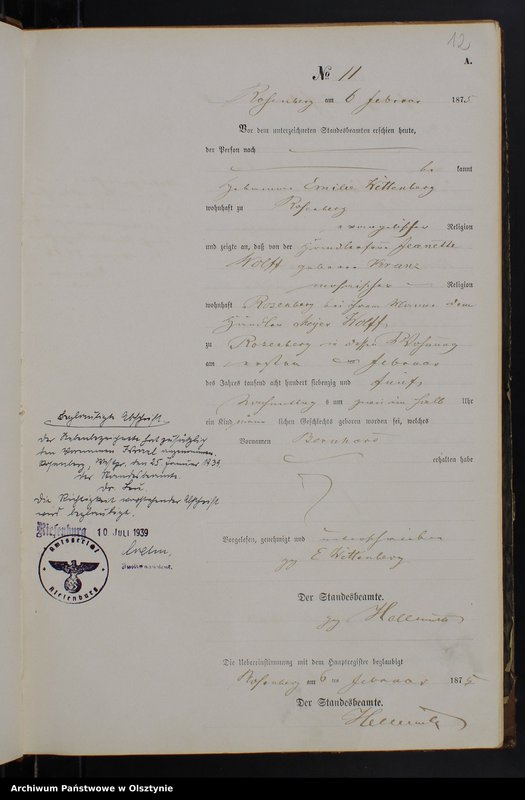 12
A.
№ 11
Rosenberg am 6 Februar 1875
Vor dem unterzeichneten Standesbeamten erschien heute,
der Person nach
be kannt
Hebamme Emilie Wittenberg
wohnhaft zu Rosenberg
evangelischer Religion
und zeigte an, daß von der Händlerfrau Jeanette
Wolff geborene Kranz
mosaischer Religion
wohnhaft Rosenberg bei ihrem Manne dem
Händler Meyer Wolff,
zu Rosenberg in dessen Wohnung
am ersten Februar
des Jahres tausend acht hundert siebenzig und fünf,
Nachmittag s um zwei ein halb Uhr
ein Kind männ lichen Geschlechts geboren worden sei, welches
Vornamen Bernhard
erhalten habe
Vorgelesen, genehmigt und unterschrieben
gez E Wittenberg
Der Standesbeamte.
gez Hellmuth
Die Uebereinstimmung mit dem Hauptregister beglaubigt
Rosenberg am 6 ten Februar 1875
Der Standesbeamte.
Hellmuth
Beglaubigte Abschrift.
Der Nebenbezeichnete hat zusätzlich
den Vornamen Israel angenommen.
Rosenberg, Westpr. den 25. Januar 1939.
Der Standesbeamte.
Dr.
Die Richtigkeit vorstehender Abschrift
wird beglaubigt.
Riesenburg 10. JULI 1939
Amtsgericht
Riesenburg
Archiwum Państwowe w Olsztynie